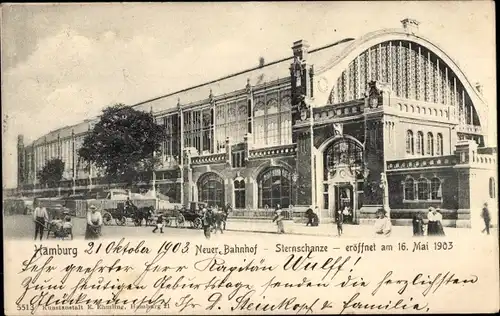 Hamburg 21 Oktober 1903. Neuer Bahnhof - Sternschanze - eröffnet am 16. Mai 1903
Sehr geehrter Herr Kapitän Wulff!
Zum heutigen Geburtstage senden die herzlichsten
Glückwünsche Ihr D. Steinkopf u. familie.
5513 Kunstanstalt E. Ehmling, Hamburg II